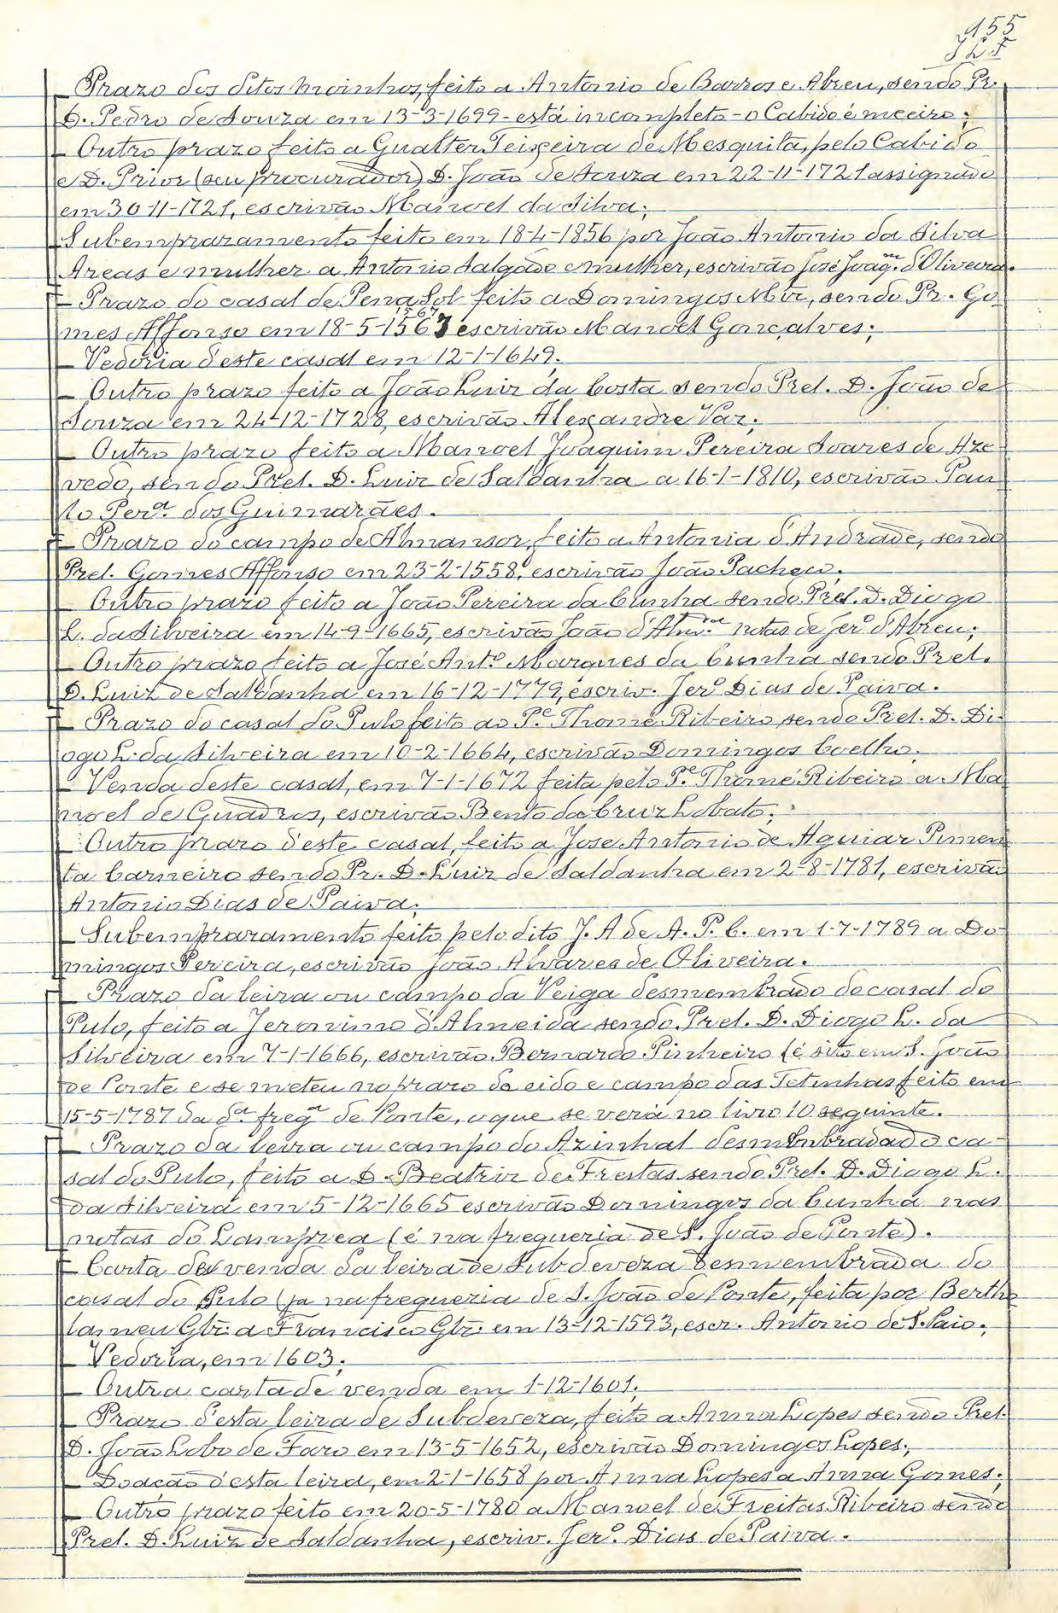 155
JLF
_ Prazo dos ditos moinhos, feito a Antonio de Barros e Abreu, sendo Pr.
D. Pedro de Souza em 13-3-1699 - está incompleto - o Cabido é meeiro;
_ Outro prazo feito a Gualter Teixeira de Mesquita, pelo Cabido
e D. Prior (seu procurador) D. João de Souza em 22-11-1721 assignado
em 30-11-1721, escrivão Manoel da Silva;
Subemprazamento feito em 18-4-1856 por João Antonio da Silva
Areas e mulher a Antonio Salgado e mulher, escrivão José Joaq.m d'Oliveira.
_ Prazo do casal de Pena Sol feito a Domingos Miz, sendo Pr. Go
mes Affonso em 18-5-1567 escrivão Manoel Gonçalves;
_ Vedoria d'este casal em 12-1-1649;
_ Outro prazo feito a João Luiz da Costa sendo Prel. D. João de
Souza em 24-12-1728, escrivão Alexandre Vaz;
_ Outro prazo feito a Manoel Joaquim Pereira Soares de Aze-
vedo, sendo Prel. D. Luiz de Saldanha a 16-1-1810, escrivão Pau
lo Per.a dos Guimarães.
_ Prazo do campo de Almansor, feito a Antonia d'Andrade, sendo
Prel. Gomes Affonso em 23-2-1558, escrivão João Pacheco;
_ Outro prazo feito a João Pereira da Cunha sendo Prel. D. Diogo
L. da Silveira em 14-9-1665, escrivão João d'Alm.da notas de Jer.o d'Abreu;
_ Outro prazo feito a José Ant.o Marques da Cunha sendo Prel.
D. Luiz de Saldanha em 16-12-1779, escriv. Jer.o Dias de Paiva.
_ Prazo do casal do Pulo feito ao P.e Thomé Ribeiro sendo Prel. D. Di-
ogo L. da Silveira em 10-2-1664, escrivão Domingos Coelho;
_ Venda deste casal, em 7-1-1672 feita pelo P.e Thomé Ribeiro a Ma
noel de Guadros, escrivão Bento da Cruz Lobato;
_ Outro prazo d'este casal, feito a Jose Antonio de Aguiar Pimen
ta Carneiro sendo Pr. D. Luiz de Saldanha em 2-8-1781, escrivão
Antonio Dias de Paiva;
_ Subemprazamento feito pelo dito J. A de A. P. C. em 1-7-1789 a Do-
mingos Pereira, escrivão João Alvares de Oliveira.
_ Prazo da leira ou campo da Veiga desmembrado do casal do
Pulo, feito a Jeronimo d'Almeida sendo Prel. D. Diogo L. da
Silveira em 7-1-1666, escrivão Bernardo Pinheiro (é sito em S. João
de Ponte e se meteu no prazo do eido e campo das Tetinhas feito em
15-5-1787 da d.a freg.a de Ponte, o que se verá no livro 10 seguinte.
_ Prazo da leira ou campo do Azinhal desmembrada do ca-
sal do Pulo, feito a D. Beatriz de Freitas sendo Prel. D. Diogo L.
da Silveira em 5-12-1665 escrivão Domingos da Cunha nas
notas do Lamprea (é na freguezia de S. João de Ponte).
_ Carta de venda da leira de Subdeveza desmembrada do
casal do Pulo (ja na freguezia de S. João de Ponte, feita por Bertho
lameu Glz. a Francisco Glz. em 13-12-1593, escr. Antonio de S. Paio;
_ Vedoria, em 1603;
_ Outra carta de venda em 1-12-1601;
_ Prazo d'esta leira de Subdeveza, feito a Anna Lopes sendo Prel.
D. João Lobo de Faro em 13-5-1652, escrivão Domingos Lopes;
_ Doação d'esta leira, em 2-1-1658 por Anna Lopes a Anna Gomes;
_ Outro prazo feito em 20-5-1780 a Manoel de Freitas Ribeiro sendo
Prel. D. Luiz de Saldanha, escriv. Jer.o Dias de Paiva.